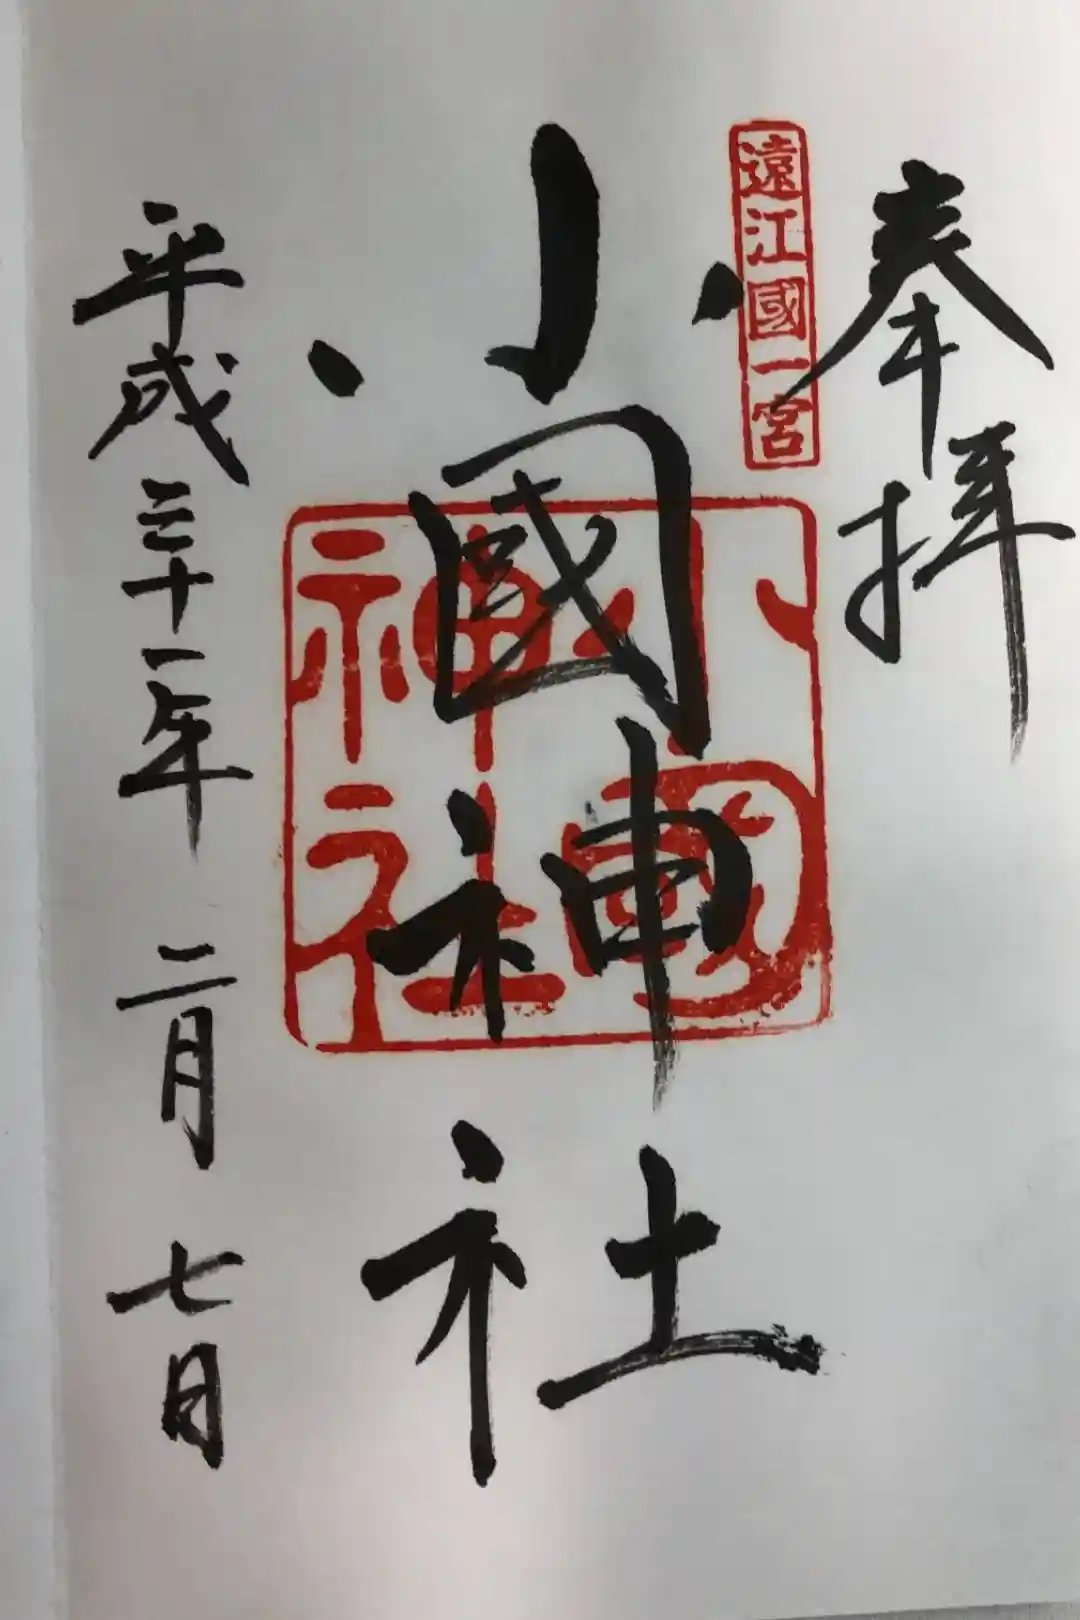 奉拝
遠江國一宮
小國神社
小國
神社
平成三十一年二月七日